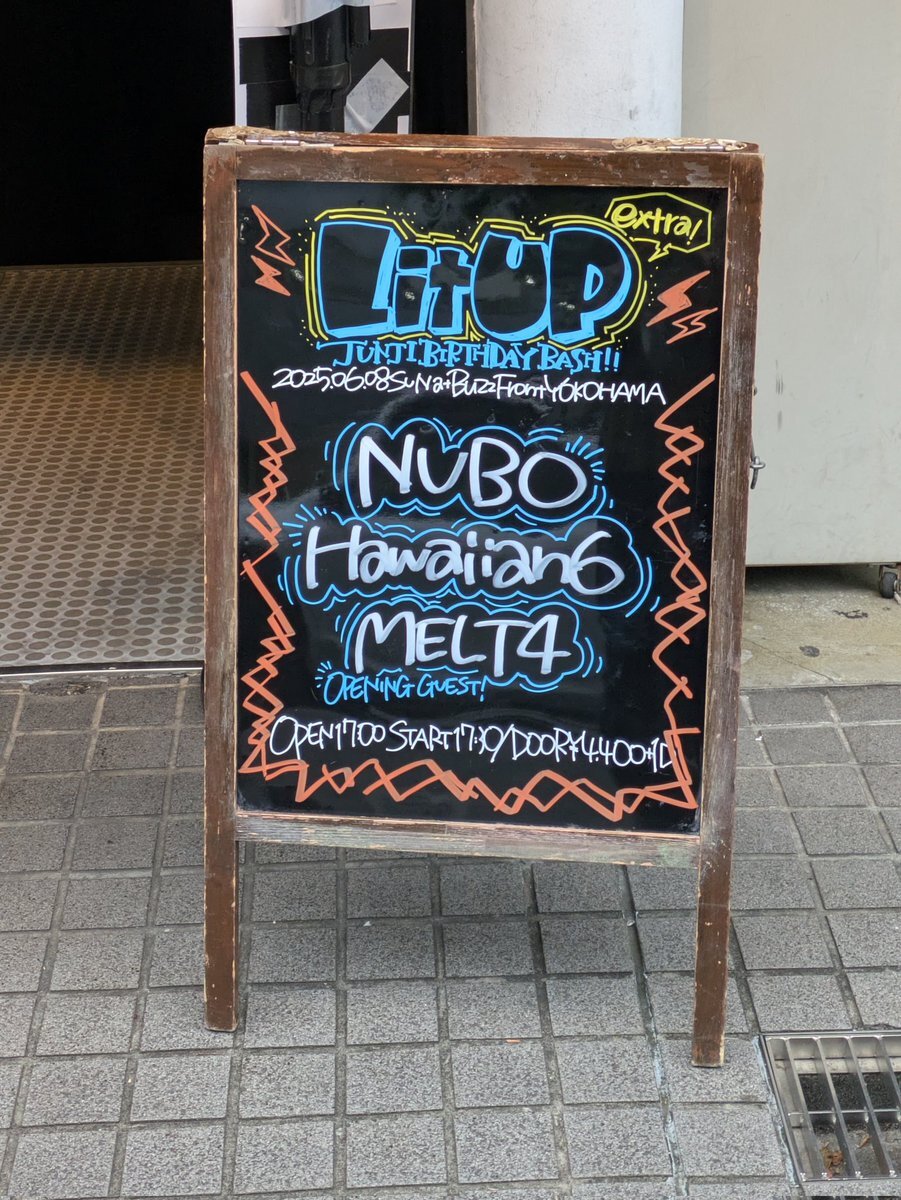 extra!
LitUP
JUNJI.BIRTHDAY BASH!!
2025.06.08 SuN at BuzzFront YOKOHAMA
NUBO
Hawaiian6
MELT4
OPENING GUEST!
OPEN17:00 START17:30/DOOR¥4.400+1D